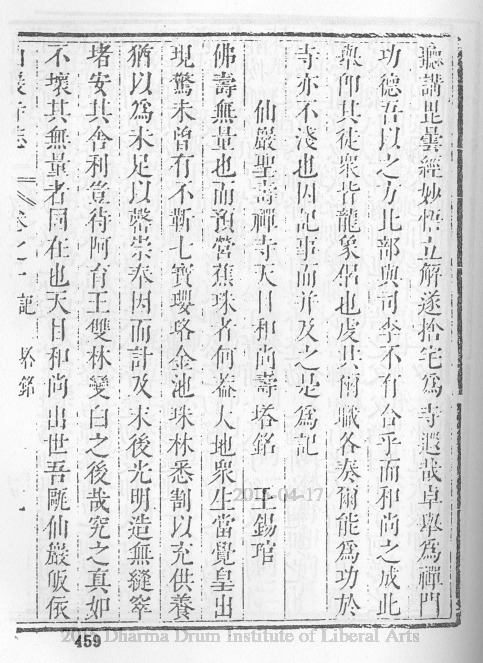 聽講毘曇經妙悟立解遂捨宅為寺遐哉卓舉為禪門
功德吾以之方比部與司李不有合乎而和尚之成此
衆即其徒衆皆龍象侶也虔共爾職各奏爾能為功於
寺亦不淺也因記事而并及之是為記
仙巖聖壽禪寺天目和尚壽塔銘 王錫琯
佛壽無量也而預營蕉珠者何葢大地衆生當覺皇出
現驚未曾有不靳七寶瓔珞金池珠林悉割以充供養
猶以為未足以罄崇奉因而計及末後光明造無縫窣
堵安其舍利豈待阿育王雙林變白之後哉究之真如
不壞其無量者固在也天目和尚出世吾甌仙巖皈依
仙巖寺志 卷之 記 塔銘
459
2016-04-17
Dharma Drum Institute of Liberal Arts